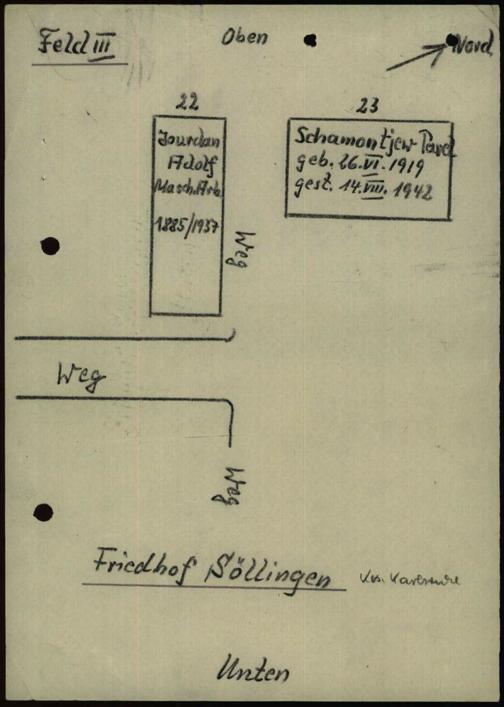 Feld III
Oben
Nord
22
23
Jourdan
Adolf
Masch. Arb.
1885/1937
Schamontjew Pavel
geb. 26.VI.1919
gest. 14.VIII.1942
Weg
Weg
Weg
Friedhof Söllingen
Krs. Karlsruhe
Unten